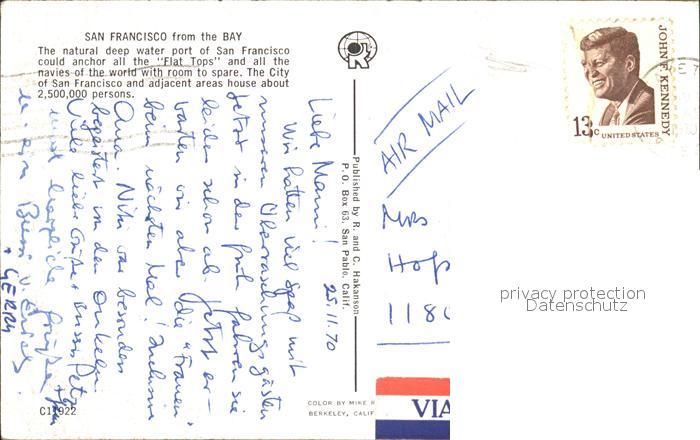 SAN FRANCISCO from the BAY
The natural deep water port of San Francisco
could anchor all the "Flat Tops" and all the
navies of the world with room to spare. The City
of San Francisco and adjacent areas house about
2,500,000 persons.
25.11.70
Liebe Mami!
Wir hatten viel Spaß mit
unseren Überraschungsgästen
jetzt in der Früh fahren sie
leider schon ab. Jetzt er-
warten wir aber die "Frauen"
beim nächsten Mal! Inclusive
Oma. Niki war besonders
begeistert von den Onkeln.
Viele liebe Grüße + Bussis
und herzliche Grüße
Bussi
GERRY
C11922
Published by R. and C. Hakanson
P. O. Box 63, San Pablo, Calif.
COLOR BY MIKE R
BERKELEY, CALIF
JOHN F. KENNEDY
13c UNITED STATES
AIR MAIL
Mrs
118
VIA
privacy protection
Datenschutz